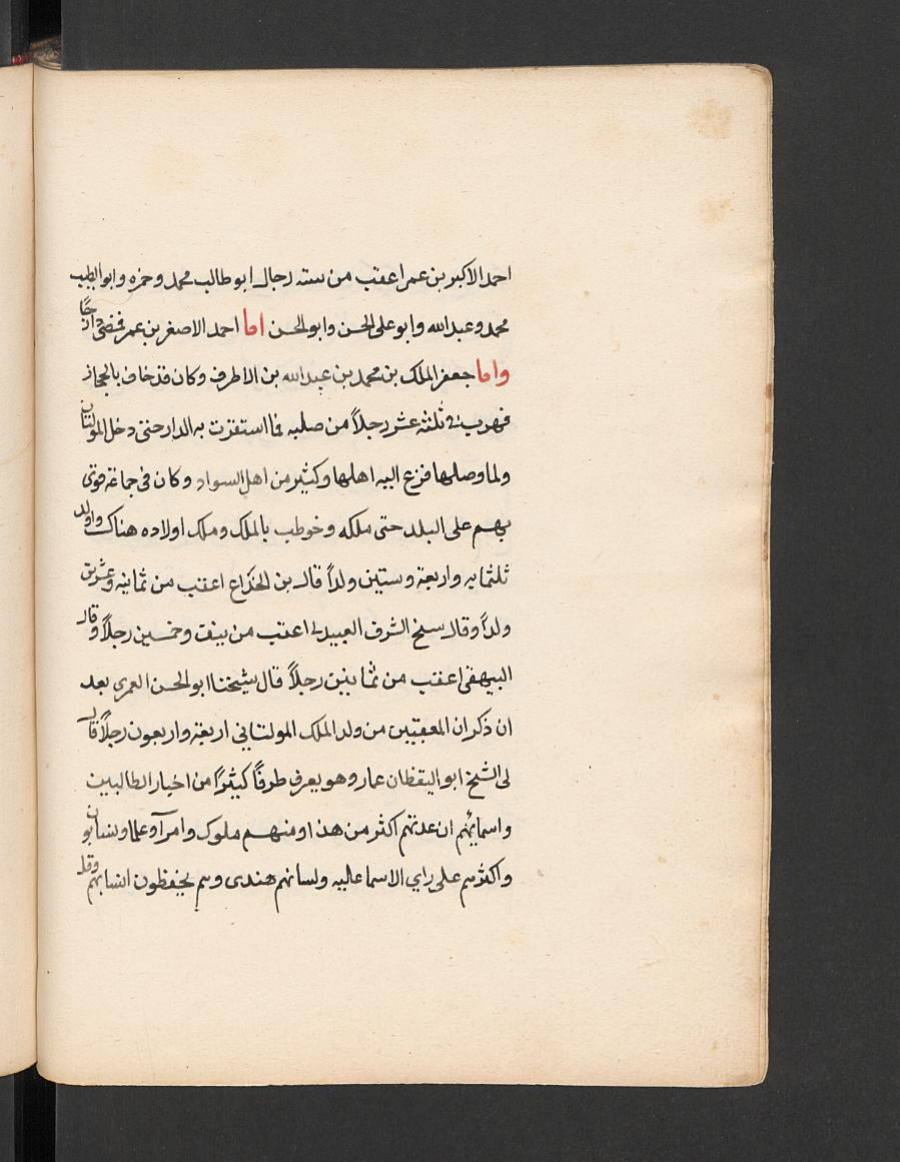 احمد الاكبر بن عمر اعقب من سته رجال ابو طالب محمد وحمزه وابو الطيب
محمد وعبدالله وابو على الحسن وابو الحسن اما احمد الاصغر بن عمر فمضى دارجًا
واما جعفر الملك بن محمد بن عبدالله بن الاطرف وكان قد خاف بالحجاز
فهرب فى ثلثة عشر رجلاً من صلبه فما استقرت به الدار حتى دخل المولتان
ولما وصلها فزع اليه اهلها وكثير من اهل السواد وكان فى جماعة قوى
بهم على البلد حتى ملكه وخوطب بالملك وملك اولاده هناك واولد
ثلثمايه واربعة وستين ولداً قال بن الخذاع اعقب من ثمانيه وعشرين
ولداً وقال سيخ الشرف العبيدلى اعقب من نيف وخمسين رجلاً وقال
البيهقى اعقب من ثمانين رجلاً قال شيخنا ابو الحسن العمرى بعد
ان ذكر ان المعقبين من ولد الملك المولتاني اربعة واربعون رجلاً قال
لى الشيخ ابو اليقظان عمار وهو يعرف طرفًا كثيرًا من اخبار الطالبين
واسمائهم ان عدتهم اكثر من هذا ومنهم ملوك وامرآ وعلما ونسابون
واكثرهم على راي الاسماعليه ولسانهم هندى وهم يحفظون انسابهم وقل